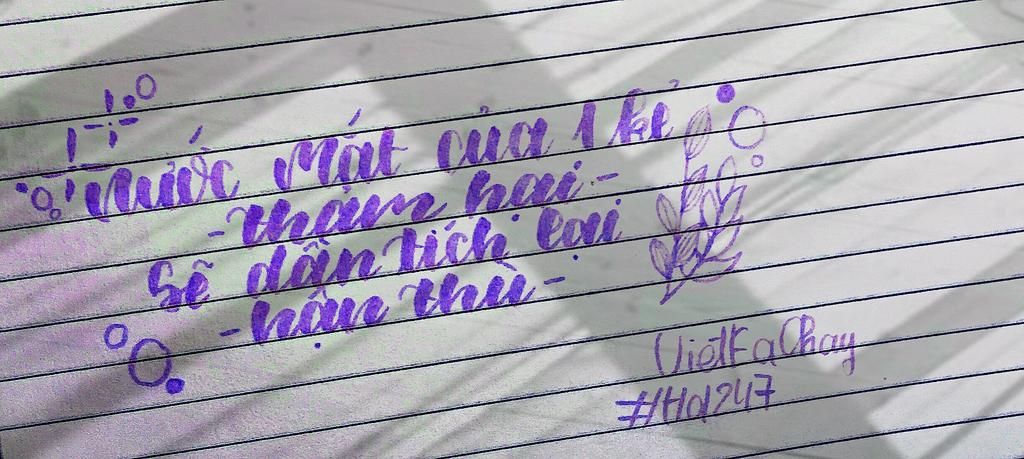 Nước Mắt của 1 kẻ
- thảm hại -
Sẽ dần tích lại
- hận thù -
ViệtFaChay
#Hd247